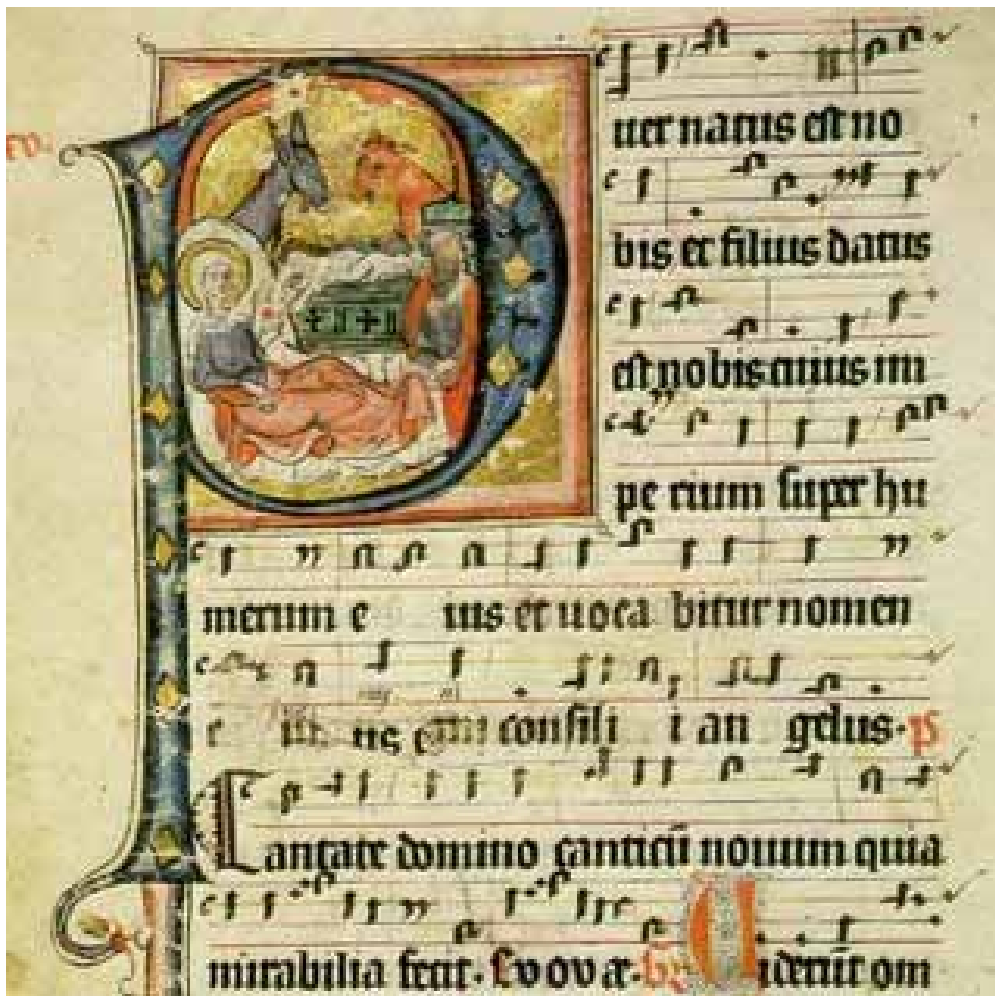 P
uer natus est no
bis et filius datus
est nobis cuius im
pe rium super hu
merum e ius et uoca bitur nomen
e ius consili i an gelus. ps
Cantate domino canticū nouum quia
mirabilia fecit. Evovæ. Viderūt om